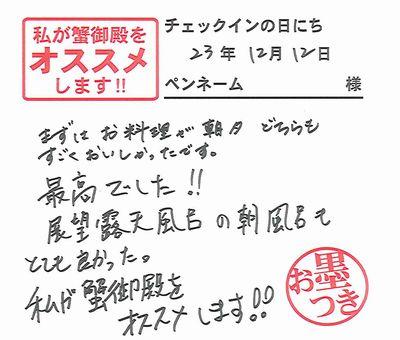 私が蟹御殿を
オススメ
します!!
チェックインの日にち
23年 12月 12日
ペンネーム 様
まずは お料理が 朝夕 どちらも
すごくおいしかったです。
最高でした!!
展望露天風呂の朝風呂も
とても良かった。
私が蟹御殿を
オススメします!!
お墨
つき